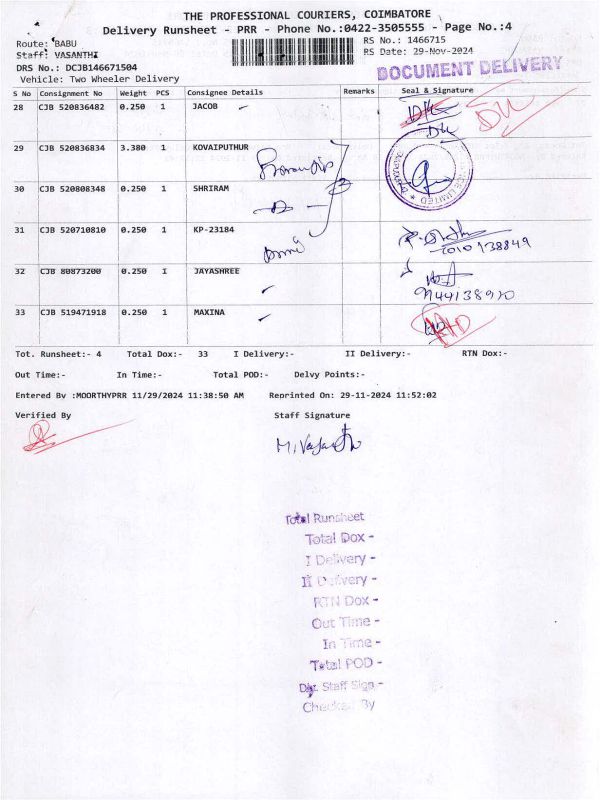 THE PROFESSIONAL COURIERS, COIMBATORE
Delivery Runsheet - PRR - Phone No.:0422-3505555 - Page No.:4
Route: BABU
Staff: VASANTHI
DRS No.: DCJB146671504
Vehicle: Two Wheeler Delivery
RS No.: 1466715
RS Date: 29-Nov-2024
DOCUMENT DELIVERY
S No Consignment No Weight PCS Consignee Details Remarks Seal & Signature
28 CJB 520836482 0.250 1 JACOB
29 CJB 520836834 3.380 1 KOVAIPUTHUR
30 CJB 520808348 0.250 1 SHRIRAM
31 CJB 520710810 0.250 1 KP-23184
32 CJB 80873200 0.250 1 JAYASHREE
9944138920
33 CJB 519471918 0.250 1 MAXINA
Tot. Runsheet:- 4 Total Dox:- 33 I Delivery:- II Delivery:- RTN Dox:-
Out Time:- In Time:- Total POD:- Delvy Points:-
Entered By :MOORTHYPRR 11/29/2024 11:38:50 AM Reprinted On: 29-11-2024 11:52:02
Verified By Staff Signature
Total Runsheet
Total Dox -
I Delivery -
II Delivery -
RTN Dox -
Out Time -
In Time -
Total POD -
Div. Staff Sign -
Checked By